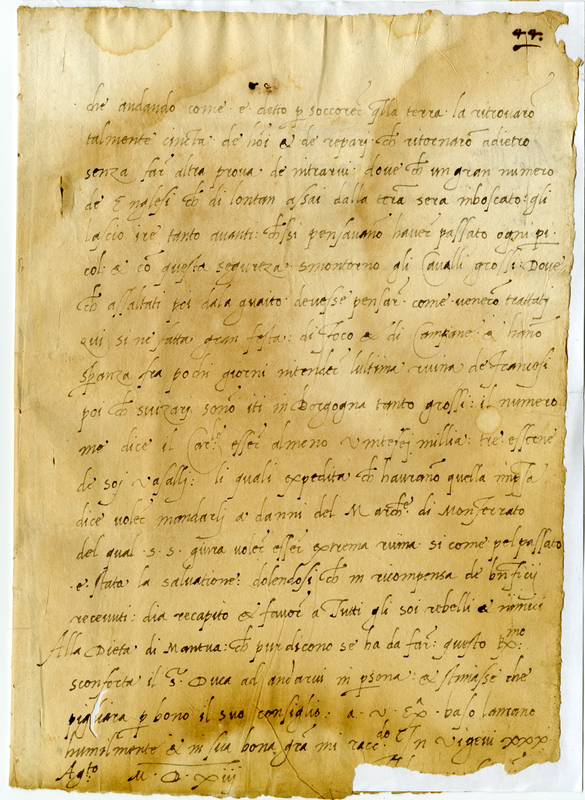 44.
che andando come è detto p soccorer qlla terra la ritrovaro
talmente cincta de homi & de repari ch ritornaro adietro
senza far altra prova de intrarvi dove ch un gran numero
de Englesi ch di lontan assai dalla terra sera imboscato: gli
lacio ire tanto quanti: chssi pensavano haver passato ogni pi
col & cõ questa segureza smontorno gli Cavalli grossi. Dove
ch assaltati poi dala guaito devesse pensar come venero trattati
qui si ne fatta gran festa: di foco & di Campane & hano
speranza fra pochi giorni intender lultima ruina de francesi
poi ch suizari sono iti in Borgogna tanto grossi: il numero
me dice il Car.le esser almeno vintesej millia: tre
de soj vasalli: li quali expedita ch haurano quella
dice voler mandarlj a danni del March.e di Monferrato
del qual s. s. giura voler esser extrema ruina si come pel passato
e stata la salvatione: dolendosi ch in ricompensa de bnficij
receuuti: dia recapito & favor a Tutti gli soi ribelli & inimici
Alla Dieta di Mantua: ch pur dicono se ha da far: questo R.mo
sconforta il s. Duca ad andarvi in psona: & stimasse che
pigliara p bono il suo consiglio: a. v. Ex. baso lamano
humilmente & in sua bona gra mi racc.do In Vigevi xxxj
Ag.to M. D. Xiij